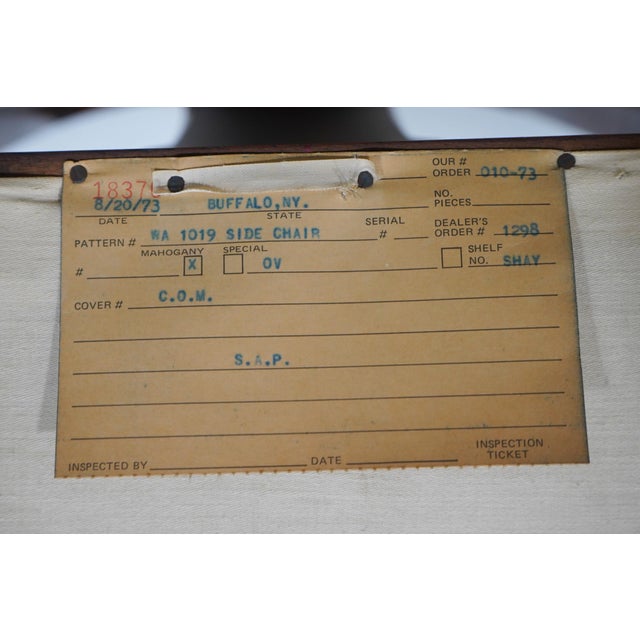 OUR #
ORDER 010-73
1837
8/20/73 BUFFALO,NY.
DATE STATE
NO.
PIECES
PATTERN # WA 1019 SIDE CHAIR
SERIAL
#
DEALER'S
ORDER # 1298
MAHOGANY SPECIAL
# X OV
SHELF
NO. SHAY
COVER # C.O.M.
S.A.P.
INSPECTED BY DATE
INSPECTION
TICKET